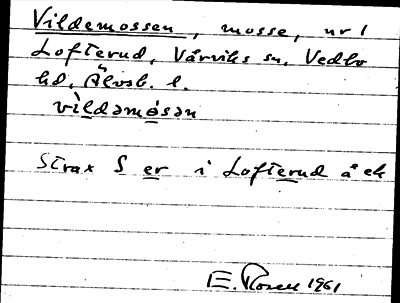 Vildemossen, mosse, nr 1
Lofterud, Vårviks sn, Vedbo
hd, Älvsb. l.
vìldəmósən
Strax S er i Lofterud å ek
E. Rosell 1961